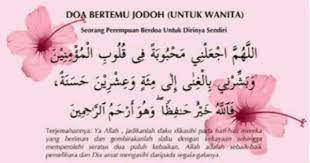 DOA BERTEMU JODOH (UNTUK WANITA)
Seorang Perempuan Berdoa Untuk Dirinya Sendiri
اللَّهُمَّ اجْعَلْنِي مَحْبُوبَةً فِي قُلُوبِ الْمُؤْمِنِيْنَ
وَبَشِّرْنِي بِالْغِنَى إِلَى مِئَةٍ وَعِشْرِيْنَ حَسَنَةً،
فَاللَّهُ خَيْرٌ حَفِظًا وَهُوَ أَرْحَمُ الرَّحِمِيْنَ
Terjemahannya: Ya Allah, jadikanlah daku dikasihi pada hati-hati mereka
yang beriman dan gembirakanlah daku dengan kekayaan sehingga
memperoleh seratus dua puluh kebaikan. Allah adalah sebaik-baik
pemelihara dan Dia amat mengasihi daripada segala-galanya.